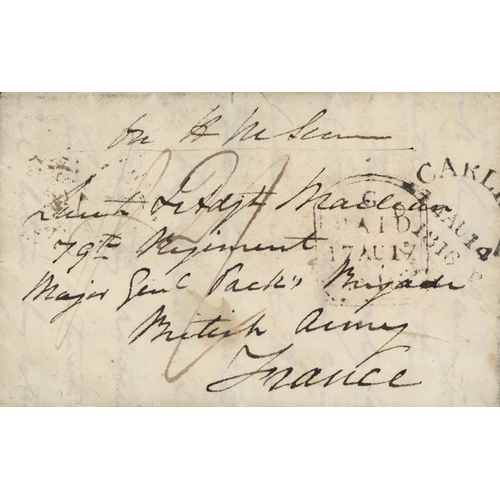 On H M Service
Lieut & Adjt Maclean
79th Regiment
Major Genl Pack's Brigade
British Army
France
CARLI
14 AU 14
1815
PAID
17 AU 17